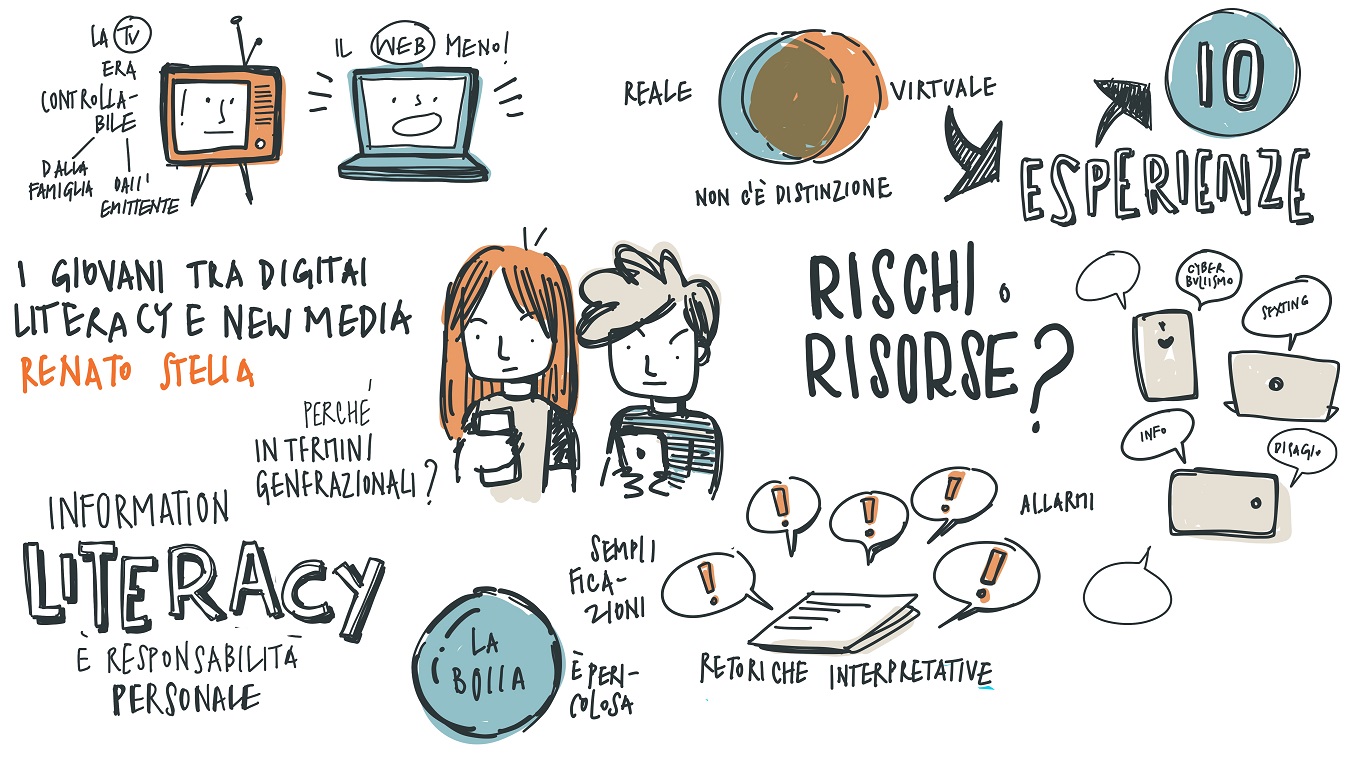 LA TV
ERA
CONTROLLA-
BILE
DALLA
FAMIGLIA
DALL'
EMITTENTE
IL WEB MENO!
REALE
VIRTUALE
NON C'È DISTINZIONE
IO
ESPERIENZE
I GIOVANI TRA DIGITAL
LITERACY E NEW MEDIA
RENATO STELLA
PERCHÉ
IN TERMINI
GENERAZIONALI?
RISCHI O
RISORSE?
CYBER
BULLISMO
SEXTING
INFO
DISAGIO
INFORMATION
LITERACY
È RESPONSABILITÀ
PERSONALE
LA
BOLLA
È PERI-
COLOSA
SEMPLI
FICA-
ZIONI
!
!
!
!
!
ALLARMI
RETORICHE INTERPRETATIVE